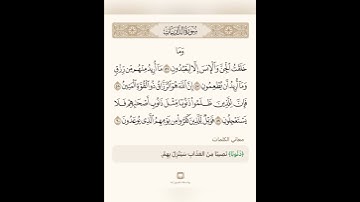 سورة الذاريات
وَمَا
خَلَقْتُ الْجِنَّ وَالْإِنسَ إِلَّا لِيَعْبُدُونِ ٥٦ مَا أُرِيدُ مِنْهُم مِّن رِّزْقٍ
وَمَا أُرِيدُ أَن يُطْعِمُونِ ٥٧ إِنَّ اللَّهَ هُوَ الرَّزَّاقُ ذُو الْقُوَّةِ الْمَتِينُ ٥٨
فَإِنَّ لِلَّذِينَ ظَلَمُوا ذَنُوبًا مِّثْلَ ذَنُوبِ أَصْحَابِهِمْ فَلَا
يَسْتَعْجِلُونِ ٥٩ فَوَيْلٌ لِّلَّذِينَ كَفَرُوا مِن يَوْمِهِمُ الَّذِي يُوعَدُونَ ٦٠
معاني الكلمات
﴿ذَنُوبًا﴾ نَصِيبًا مِنَ العَذَابِ سَيَنْزِلُ بِهِمْ.